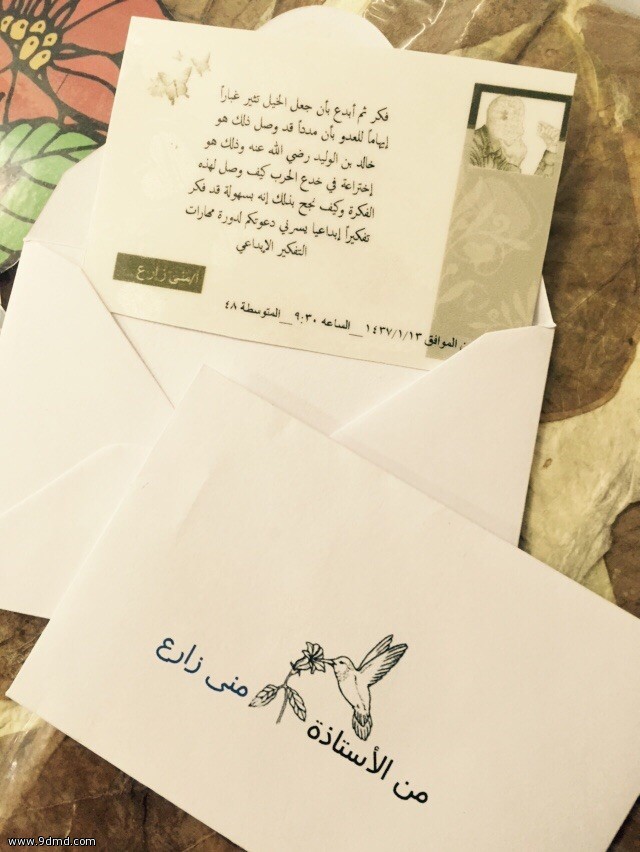 فكر ثم أبدع بأن جعل الخيل تثير غباراً
إيهاماً للعدو بأن مدداً قد وصل ذلك هو
خالد بن الوليد رضي الله عنه وذلك هو
إختراعة في خدع الحرب كيف وصل لهذه
الفكرة وكيف نجح بتلك إنه بسهولة قد فكر
تفكيراً إبداعيا يسرني دعوتكم لدورة مهارات
التفكير الإبداعي
أ/منى زارع
الموافق ١٤٣٧/١/١٣__الساعه ٩:٣٠__المتوسطة ٤٨
من الأستاذة
منى زارع
www.9dmd.com